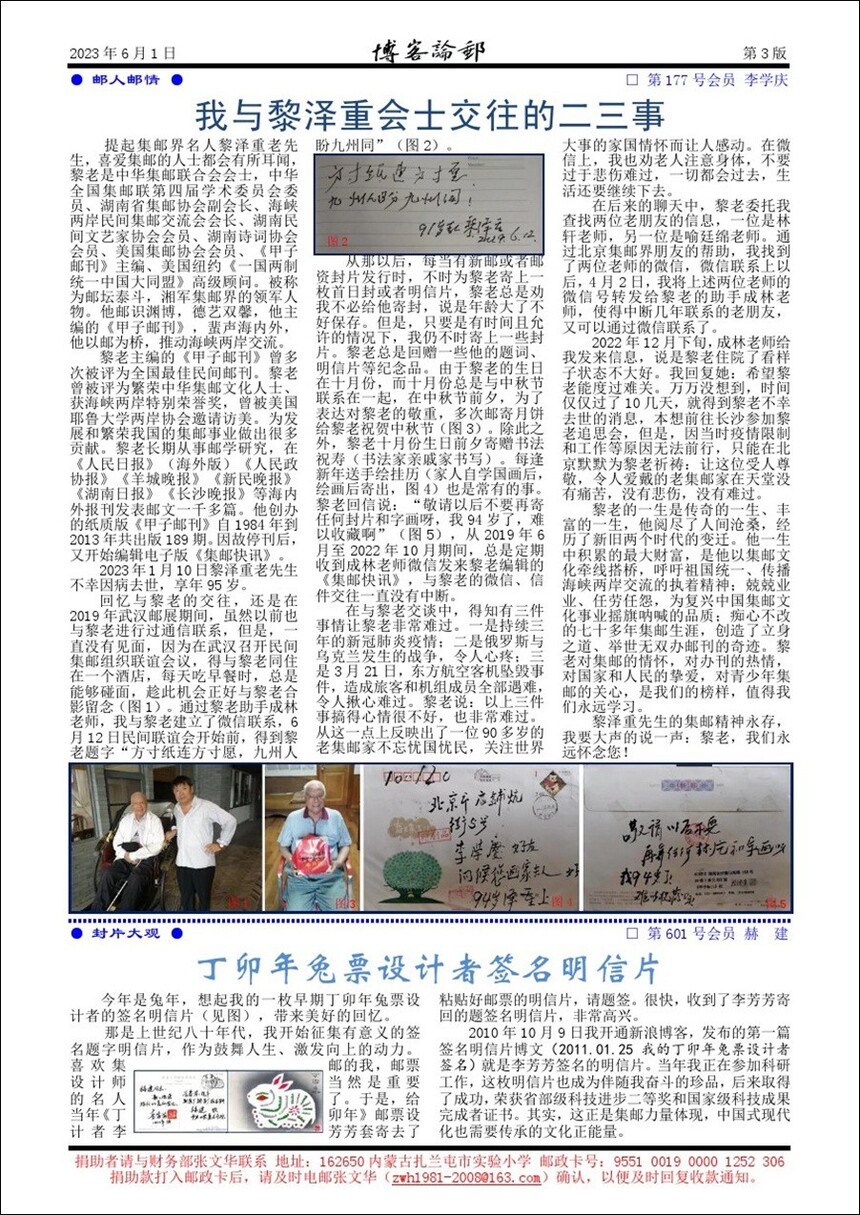 2023 年 6 月 1 日
博客論郵
第 3 版
● 邮人邮情 ●
□ 第 177 号会员 李学庆
我与黎泽重会士交往的二三事
提起集邮界名人黎泽重老先
生，喜爱集邮的人士都会有所耳闻，
黎老是中华集邮联合会会士，中华
全国集邮联第四届学术委员会委
员、湖南省集邮协会副会长、海峡
两岸民间集邮交流会会长、湖南民
间文艺家协会会员、湖南诗词协会
会员、美国集邮协会会员、《甲子
邮刊》主编、美国纽约《一国两制
统一中国大同盟》高级顾问。被称
为邮坛泰斗，湘军集邮界的领军人
物。他邮识渊博，德艺双馨，他主
编的《甲子邮刊》，蜚声海内外，
他以邮为桥，推动海峡两岸交流。
黎老主编的《甲子邮刊》曾多
次被评为全国最佳民间邮刊。黎老
曾被评为繁荣中华集邮文化人士、
获海峡两岸特别荣誉奖，曾被美国
耶鲁大学两岸协会邀请访美。为发
展和繁荣我国的集邮事业做出很多
贡献。黎老长期从事邮学研究，在
《人民日报》（海外版）《人民政
协报》《羊城晚报》《新民晚报》
《湖南日报》《长沙晚报》等海内
外报刊发表邮文一千多篇。他创办
的纸质版《甲子邮刊》自 1984 年到
2013 年共出版 189 期。因故停刊后，
又开始编辑电子版《集邮快讯》。
2023 年 1 月 10 日黎泽重老先生
不幸因病去世，享年 95 岁。
回忆与黎老的交往，还是在
2019 年武汉邮展期间，虽然以前也
与黎老进行过通信联系，但是，一
直没有见面，因为在武汉召开民间
集邮组织联谊会议，得与黎老同住
在一个酒店，每天吃早餐时，总是
能够碰面，趁此机会正好与黎老合
影留念（图 1）。通过黎老助手成林
老师，我与黎老建立了微信联系，6
月 12 日民间联谊会开始前，得到黎
老题字“方寸纸连方寸愿，九州人
盼九州同”（图 2）。
方寸纸连方寸愿
九州人盼九州同！
图 2
2019.6.12.
从那以后，每当有新邮或者邮
资封片发行时，不时为黎老寄上一
枚首日封或者明信片，黎老总是劝
我不必给他寄封，说是年龄大了不
好保存。但是，只要是有时间且允
许的情况下，我仍不时寄上一些封
片。黎老总是回赠一些他的题词、
明信片等纪念品。由于黎老的生日
在十月份，而十月份总是与中秋节
联系在一起，在中秋节前夕，为了
表达对黎老的敬重，多次邮寄月饼
给黎老祝贺中秋节（图 3）。除此之
外，黎老十月份生日前夕寄赠书法
祝寿（书法家亲戚家书写）。每逢
新年送手绘挂历（家人自学国画后，
绘画后寄出，图 4）也是常有的事。
黎老回信说：“敬请以后不要再寄
任何封片和字画呀，我 94 岁了，难
以收藏啊”（图 5），从 2019 年 6
月至 2022 年 10 月期间，总是定期
收到成林老师微信发来黎老编辑的
《集邮快讯》，与黎老的微信、信
件交往一直没有中断。
在与黎老交谈中，得知有三件
事情让黎老非常难过。一是持续三
年的新冠肺炎疫情；二是俄罗斯与
乌克兰发生的战争，令人心疼；三
是 3 月 21 日，东方航空客机坠毁事
件，造成旅客和机组成员全部遇难，
令人揪心难过。黎老说：以上三件
事搞得心情很不好，也非常难过。
从这一点上反映出了一位 90 多岁的
老集邮家不忘忧国忧民，关注世界
大事的家国情怀而让人感动。在微
信上，我也劝老人注意身体，不要
过于悲伤难过，一切都会过去，生
活还要继续下去。
在后来的聊天中，黎老委托我
查找两位老朋友的信息，一位是林
轩老师，另一位是喻廷绵老师。通
过北京集邮界朋友的帮助，我找到
了两位老师的微信，微信联系上以
后，4 月 2 日，我将上述两位老师的
微信号转发给黎老的助手成林老
师，使得中断几年联系的老朋友，
又可以通过微信联系了。
2022 年 12 月下旬，成林老师给
我发来信息，说是黎老住院了看样
子状态不大好。我回复她：希望黎
老能度过难关。万万没想到，时间
仅仅过了 10 几天，就得到黎老不幸
去世的消息，本想前往长沙参加黎
老追思会，但是，因当时疫情限制
和工作等原因无法前行，只能在北
京默默为黎老祈祷：让这位受人尊
敬，令人爱戴的老集邮家在天堂没
有痛苦，没有悲伤，没有难过。
黎老的一生是传奇的一生、丰
富的一生，他阅尽了人间沧桑，经
历了新旧两个时代的变迁。他一生
中积累的最大财富，是他以集邮文
化牵线搭桥，呼吁祖国统一、传播
海峡两岸交流的执着精神；兢兢业
业、任劳任怨，为复兴中国集邮文
化事业摇旗呐喊的品质；痴心不改
的七十多年集邮生涯，创造了立身
之道、举世无双办邮刊的奇迹。黎
老对集邮的情怀，对办刊的热情，
对国家和人民的挚爱，对青少年集
邮的关心，是我们的榜样，值得我
们永远学习。
黎泽重先生的集邮精神永存，
我要大声的说一声：黎老，我们永
远怀念您！
图 1
图 3
10 0120
北京
街5号
李学庆 好友
问候您画家夫人
94岁
图 4
敬请以后不要
再寄任何封片和字画呀
我94岁了！
难以收藏
图 5
● 封片大观 ●
□ 第 601 号会员 赫 建
丁卯年兔票设计者签名明信片
今年是兔年，想起我的一枚早期丁卯年兔票设
计者的签名明信片（见图），带来美好的回忆。
那是上世纪八十年代，我开始征集有意义的签
名题字明信片，作为鼓舞人生、激发向上的动力。
喜欢集邮的我，邮票
设计师当然是重要
的名人了。于是，给
当年《丁卯年》邮票设
计者李芳芳套寄去了
粘贴好邮票的明信片，请题签。很快，收到了李芳芳寄
回的题签名明信片，非常高兴。
2010 年 10 月 9 日我开通新浪博客，发布的第一篇
签名明信片博文（2011.01.25 我的丁卯年兔票设计者
签名）就是李芳芳签名的明信片。当年我正在参加科研
工作，这枚明信片也成为伴随我奋斗的珍品，后来取得
了成功，荣获省部级科技进步二等奖和国家级科技成果
完成者证书。其实，这正是集邮力量体现，中国式现代
化也需要传承的文化正能量。
捐助者请与财务部张文华联系 地址：162650 内蒙古扎兰屯市实验小学 邮政卡号：9551 0019 0000 1252 306
捐助款打入邮政卡后，请及时电邮张文华（zwh1981-2008@163.com）确认，以便及时回复收款通知。